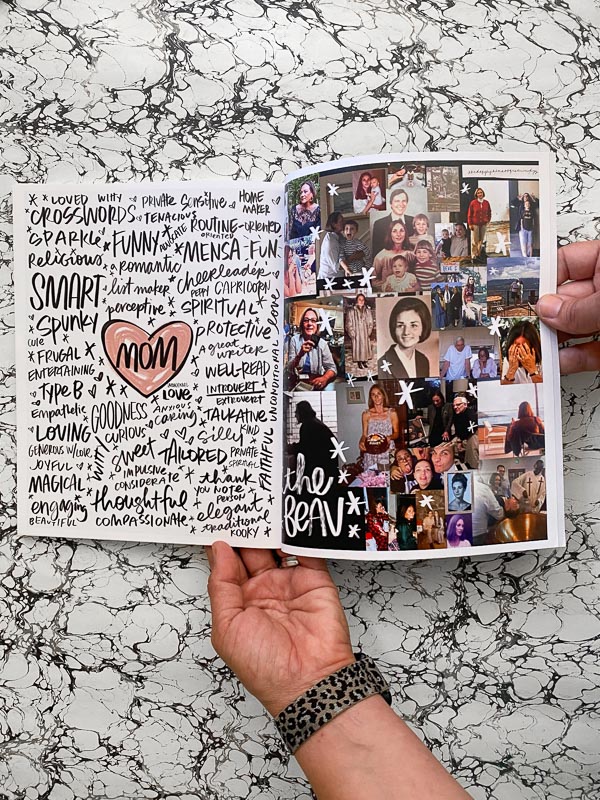 LOVED WITTY PRIVATE SENSITIVE HOME MAKER
CROSSWORDS TENACIOUS
SPARKLE FUNNY ADVOCATE ROUTINE-ORIENTED
RELIGIOUS MENSA FUN
a romantic
SMART list maker cheerleader
PEPPY CAPRICORN
perceptive SPIRITUAL
Spunky PROTECTIVE
CUTE
FRUGAL MOM a great writer
ENTERTAINING WELL-READ
UNCONDITIONAL LOVE
TYPE B LOVE INTROVERT
EXTROVERT
Empathetic GOODNESS ANXIOUS TALKATIVE
CURIOUS CARING
LOVING silly KIND
GENEROUS W/LOVE sweet TAILORED PRIVATE
JOYFUL WITTY IMPULSIVE
CONSIDERATE thank you NOTE person
FAITHFUL
MAGICAL
engaging thoughtful elegant
traditional
BEAUTIFUL COMPASSIONATE KOOKY
the
BEAV